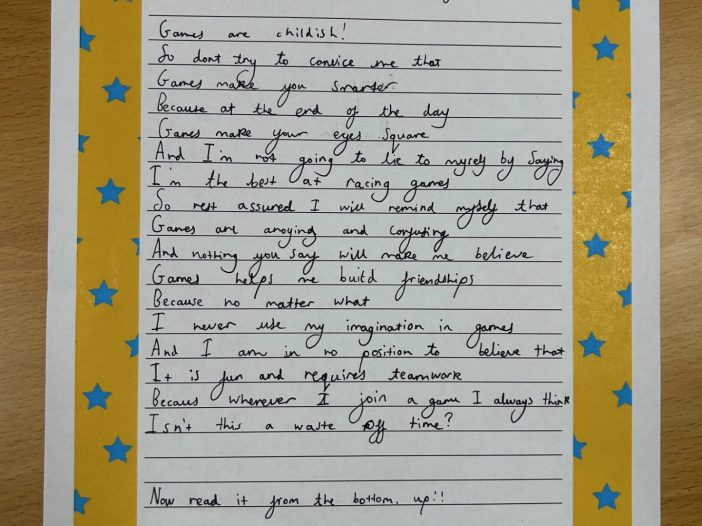 Games are childish!
So dont try to convice me that
Games make you smarter
Because at the end of the day
Games make your eyes square
And I'm not going to lie to myself by saying
I'm the best at racing games
So rest assured I will remind myself that
Games are anoying and confusing
And nothing you say will make me believe
Games helps me build friendships
Because no matter what
I never use my imagination in games
And I am in no position to believe that
It is fun and requires teamwork
Becaus wherever I join a game I always think
Isn't this a waste off time?
Now read it from the bottom, up!!